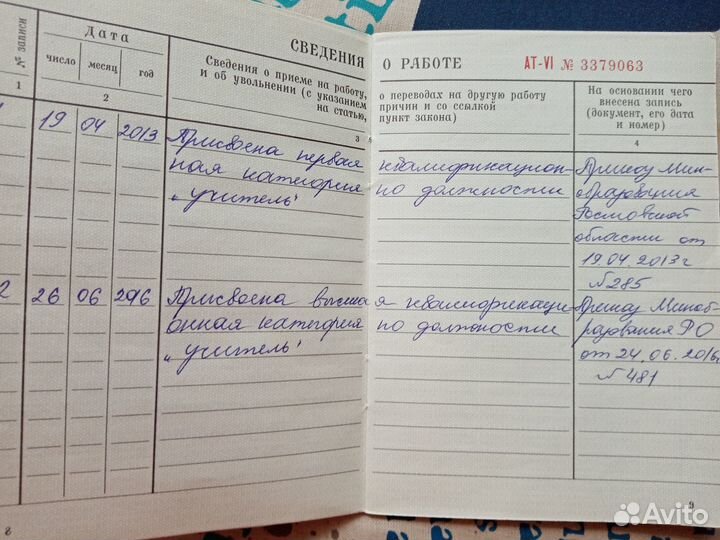 СВЕДЕНИЯ О РАБОТЕ АТ-VI № 3379063
№ записи
Дата
число месяц год
Сведения о приеме на работу,
и об увольнении (с указанием
на статью,
о переводах на другую работу
причин и со ссылкой
пункт закона)
На основании чего
внесена запись
(документ, его дата
и номер)
1 2 3 4
19 04 2013 Присвоена первая квалификацион-
ная категория по должности
„учитель"
Приказ Мин-
образования
Ростовской
области от
19.04.2013г
№285
2 26 06 2016 Присвоена высшая квалификаци-
онная категория по должности
„учитель"
Приказ Миноб-
разования РО
от 24.06.2016г
№481
8
9
Avito